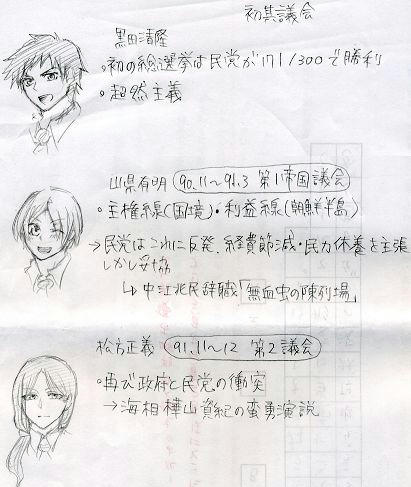 初其議会
黒田清隆
・初の総選挙は民党が171/300で勝利
・超然主義
山県有明 90.11〜91.3 第1帝国議会
・主権線(国境)・利益線(朝鮮半島)
→民党はこれに反発、経費節減・民力休養を主張
しかし妥協
↳中江兆民辞職「無血虫の陳列場」
松方正義 91.11〜12 第2議会
・再び政府と民党の衝突
→海相樺山資紀の蛮勇演説